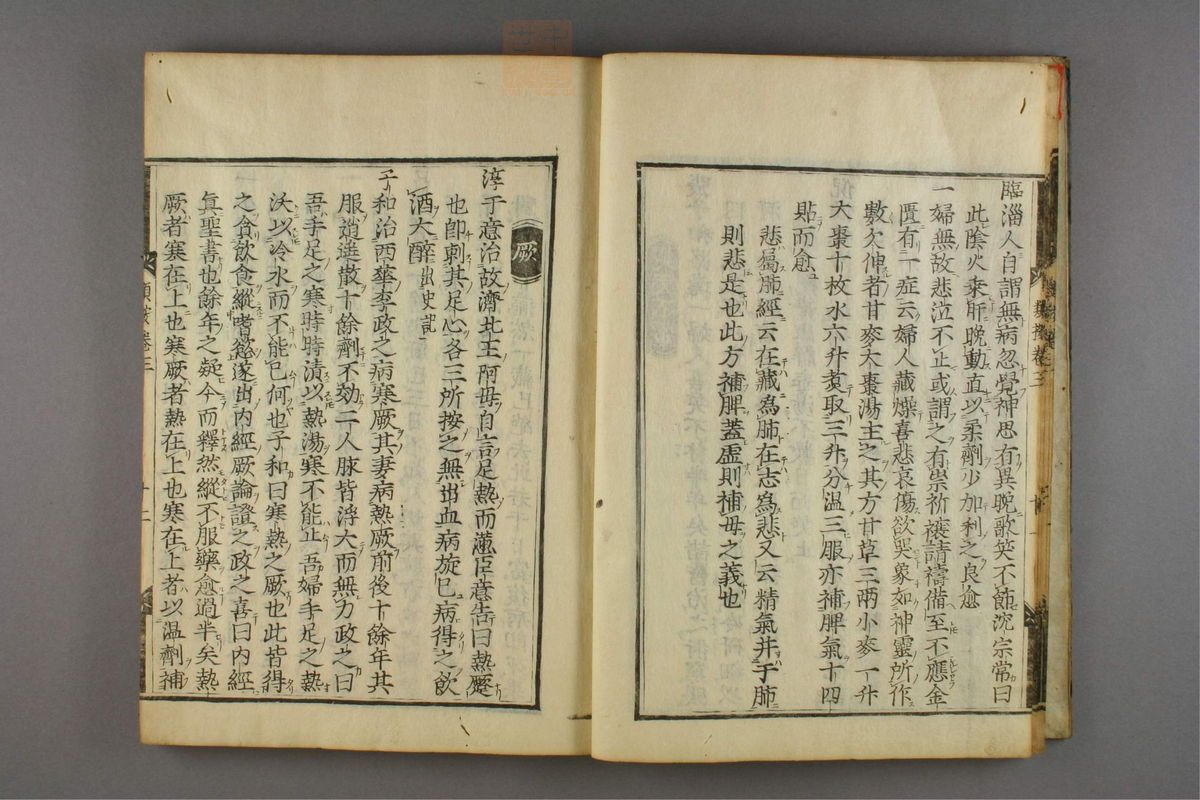 臨淄人自謂無病忽覺神思有異晚歌笑不飾沈宗常曰
此陰火乗肺晚動宜以柔劑少加利之良愈
一婦無故悲泣不止或謂之有祟祈禳請禱備至不應金
匱有一症云婦人藏燥喜悲哀傷欲哭象如神靈所作
數欠伸者甘麥大棗湯主之其方甘草三兩小麥一升
大棗十枚水六升煮取三升分温三服亦補脾氣十四
貼而愈
悲屬肺經云在藏為肺在志為悲又云精氣并于肺
則悲是也此方補脾蓋虛則補母之義也
厥
淳于意治故濟北王阿母自言足熱而懣臣意告曰熱蹷
也卽刺其足心各三所按之無出血病旋已病得之飲
酒大醉出史記
子和治西華李政之病寒厥其妻病熱厥前後十餘年其
服逍遥散十餘劑不効二人脉皆浮大而無力政之曰
吾手足之寒時時漬以熱湯寒不能止吾婦手足之熱
沃以冷水而不能已何也子和曰寒熱之厥也此皆得
之貪飲食縱嗜慾遂出内經厥論證之政之喜曰内經
眞聖書也餘年之疑今而釋然縱不服藥愈過半矣熱
厥者寒在上也寒厥者熱在上也寒在上者以温劑補
類案卷三
十二